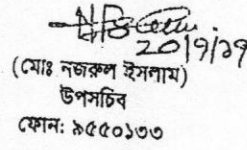 20/9/১৭
(মোঃ নজরুল ইসলাম)
উপসচিব
ফোন: ৯৫৫০১৩৩